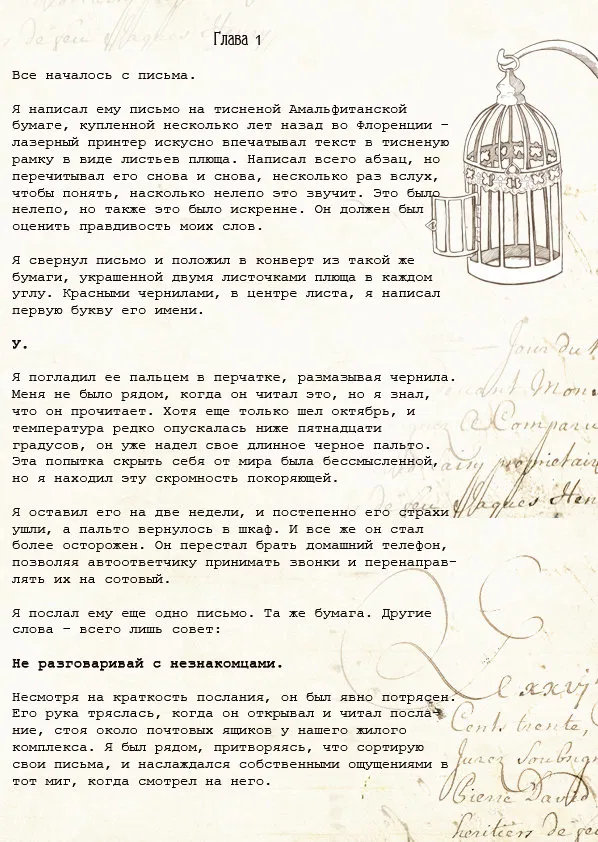 Глава 1
Все началось с письма.
Я написал ему письмо на тисненой Амальфитанской
бумаге, купленной несколько лет назад во Флоренции –
лазерный принтер искусно впечатывал текст в тисненую
рамку в виде листьев плюща. Написал всего абзац, но
перечитывал его снова и снова, несколько раз вслух,
чтобы понять, насколько нелепо это звучит. Это было
нелепо, но также это было искренне. Он должен был
оценить правдивость моих слов.
Я свернул письмо и положил в конверт из такой же
бумаги, украшенной двумя листочками плюща в каждом
углу. Красными чернилами, в центре листа, я написал
первую букву его имени.
У.
Я погладил ее пальцем в перчатке, размазывая чернила.
Меня не было рядом, когда он читал это, но я знал,
что он прочитает. Хотя еще только шел октябрь, и
температура редко опускалась ниже пятнадцати
градусов, он уже надел свое длинное черное пальто.
Эта попытка скрыть себя от мира была бессмысленной,
но я находил эту скромность покоряющей.
Я оставил его на две недели, и постепенно его страхи
ушли, а пальто вернулось в шкаф. И все же он стал
более осторожен. Он перестал брать домашний телефон,
позволяя автоответчику принимать звонки и перенаправ-
лять их на сотовый.
Я послал ему еще одно письмо. Та же бумага. Другие
слова – всего лишь совет:
Не разговаривай с незнакомцами.
Несмотря на краткость послания, он был явно потрясен.
Его рука тряслась, когда он открывал и читал посла-
ние, стоя около почтовых ящиков у нашего жилого
комплекса. Я был рядом, притворяясь, что сортирую
свои письма, и наслаждался собственными ощущениями в
тот миг, когда смотрел на него.
Jour du
Mon
Compar
proprietair
Jaques Hen
xxvj
Cents trente,
Jurer Soubsign
Pierre David
heritiers de feu